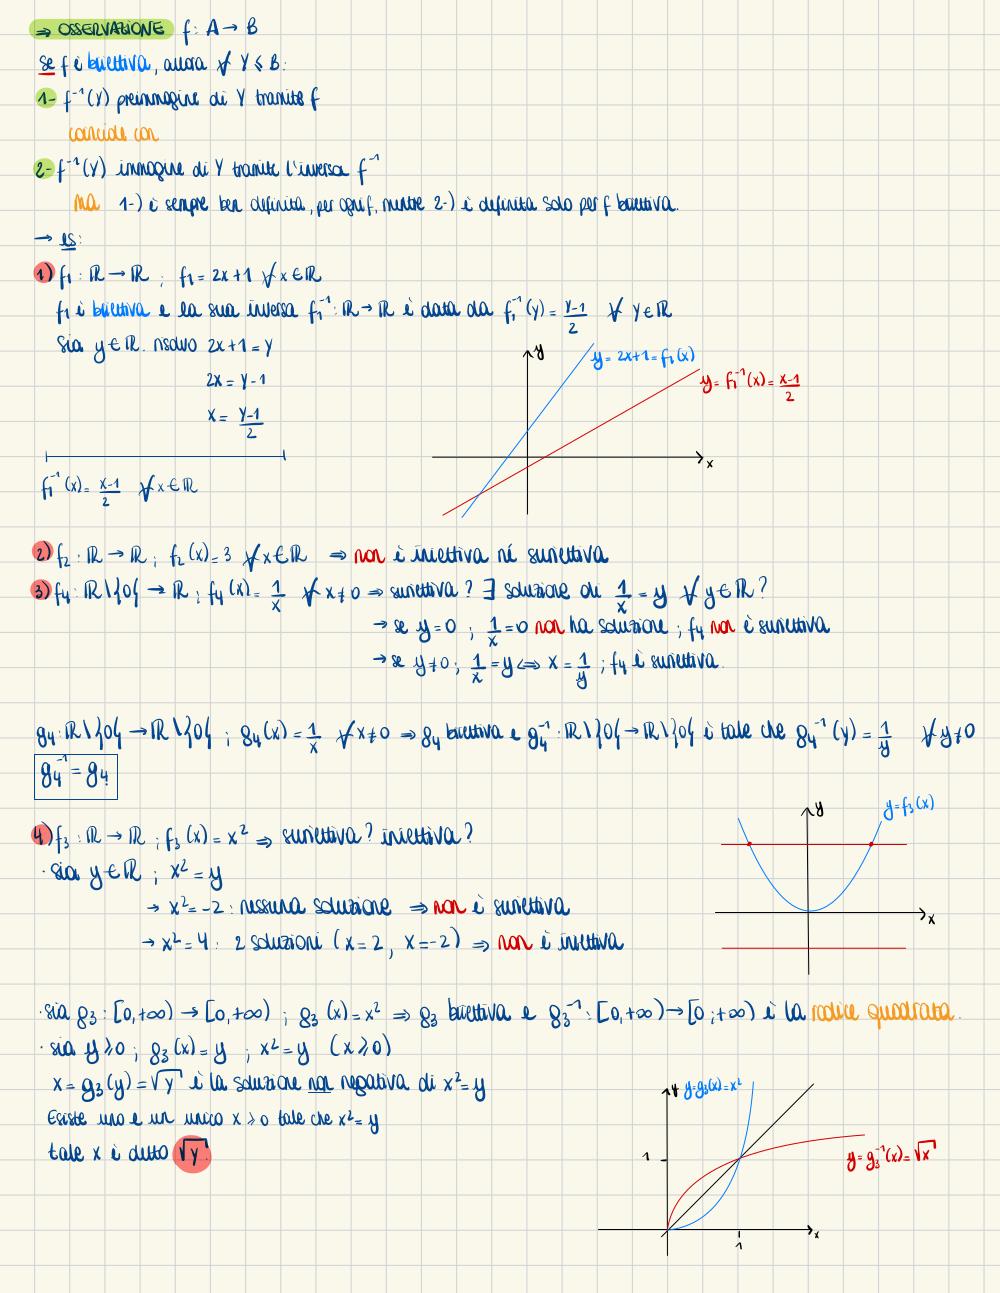 ⇒ OSSERVAZIONE f: A → B
se f è biiettiva, allora ∀ Y ⊆ B:
1- f⁻¹(Y) preimmagine di Y tramite f
coincide con
2- f⁻¹(Y) immagine di Y tramite l'inversa f⁻¹
ma 1-) è sempre ben definita, per ogni f, mentre 2-) è definita solo per f biiettiva.
→ es:
1) f₁: ℝ → ℝ ; f₁ = 2x+1 ∀x∈ℝ
f₁ è biiettiva e la sua inversa f₁⁻¹: ℝ → ℝ è data da f₁⁻¹(y) = (y-1)/2 ∀ y∈ℝ
Sia y∈ℝ. risolvo 2x+1 = y
2x = y-1
x = (y-1)/2
f₁⁻¹(x) = (x-1)/2 ∀x∈ℝ
y
y = 2x+1 = f₁(x)
y = f₁⁻¹(x) = (x-1)/2
x
2) f₂: ℝ → ℝ ; f₂(x) = 3 ∀x∈ℝ ⇒ non è iniettiva né suriettiva
3) f₄: ℝ\{0} → ℝ ; f₄(x) = 1/x ∀x≠0 ⇒ suriettiva? ∃ soluzione di 1/x = y ∀y∈ℝ?
→ se y=0 ; 1/x = 0 non ha soluzione ; f₄ non è suriettiva
→ se y≠0 ; 1/x = y ⇔ x = 1/y ; f₄ è suriettiva.
g₄: ℝ\{0} → ℝ\{0} ; g₄(x) = 1/x ∀x≠0 ⇒ g₄ biiettiva e g₄⁻¹: ℝ\{0} → ℝ\{0} è tale che g₄⁻¹(y) = 1/y ∀y≠0
g₄⁻¹ = g₄
4) f₃: ℝ → ℝ ; f₃(x) = x² ⇒ suriettiva? iniettiva?
· sia y∈ℝ ; x² = y
→ x² = -2 : nessuna soluzione ⇒ non è suriettiva
→ x² = 4 : 2 soluzioni (x=2, x=-2) ⇒ non è iniettiva
y
y = f₃(x)
x
· sia g₃: [0,+∞) → [0,+∞) ; g₃(x) = x² ⇒ g₃ biiettiva e g₃⁻¹: [0,+∞) → [0;+∞) è la radice quadrata.
· sia y⩾0 ; g₃(x) = y ; x² = y (x⩾0)
x = g₃(y) = √y è la soluzione non negativa di x² = y
Esiste uno e un unico x⩾0 tale che x² = y
tale x è detto √y.
y
y=g₃(x)=x²
y = g₃⁻¹(x) = √x
1
1
x